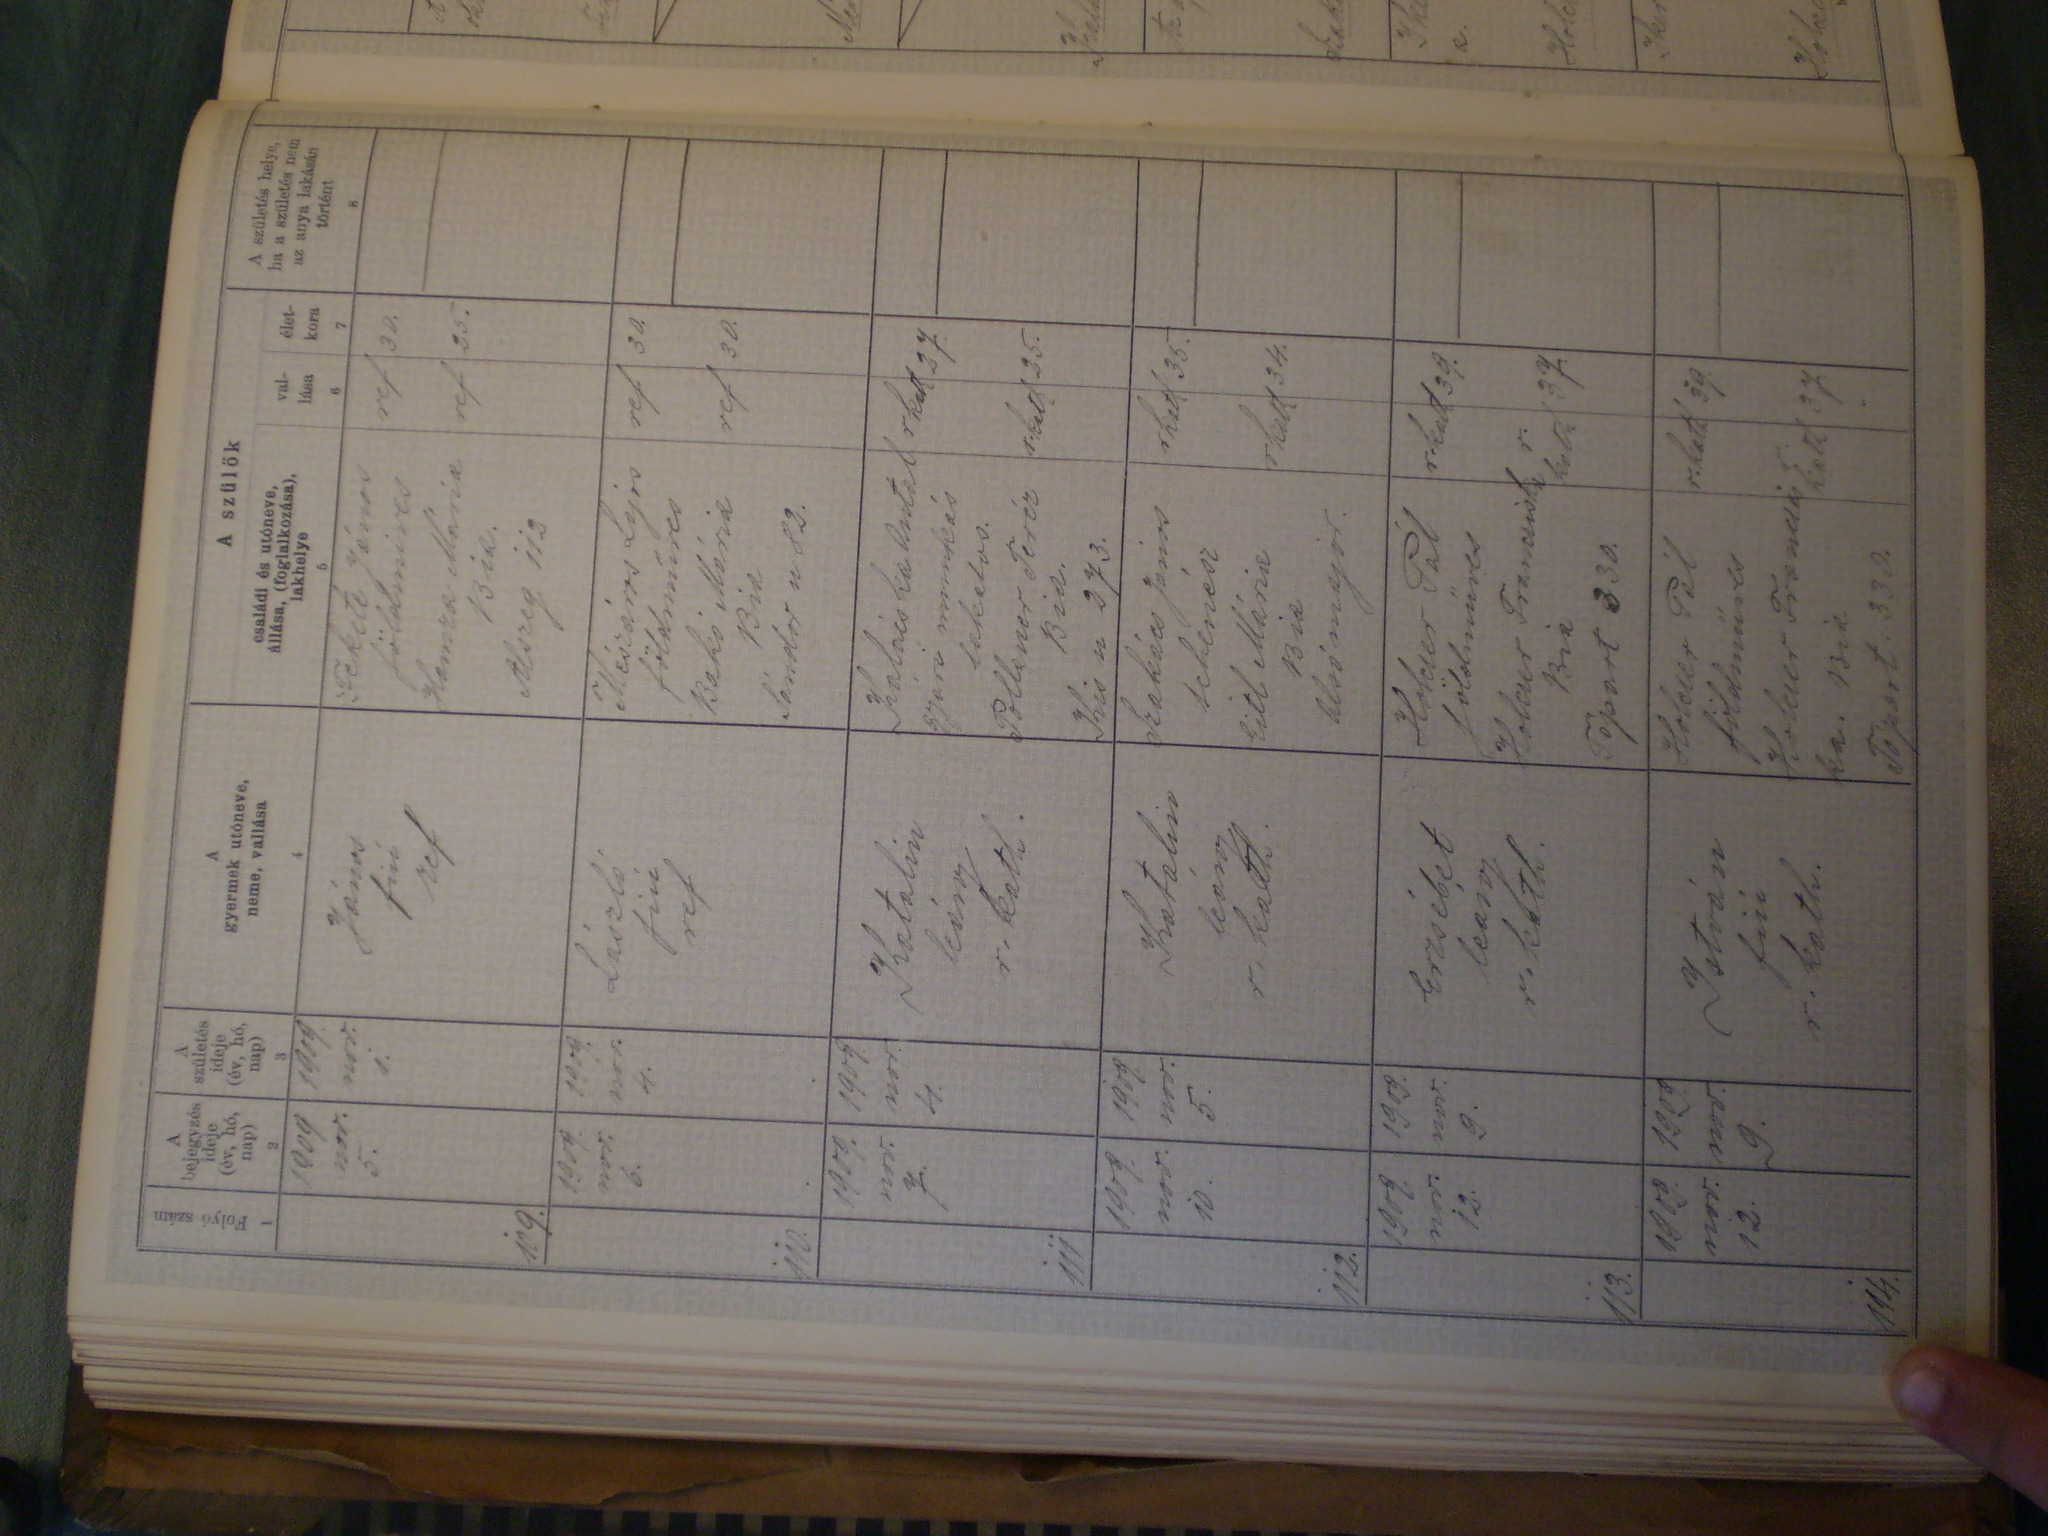 Folyó szám
1
A
bejegyzés
ideje
(év, hó,
nap)
2
A
születés
ideje
(év, hó,
nap)
3
A
gyermek utóneve,
neme, vallása
4
A szülők
családi és utóneve,
állása, (foglalkozása),
lakhelye
5
val-
lása
6
élet-
kora
7
A születés helye,
ha a születés nem
az anya lakásán
történt
8
109.
1909
nov.
5.
1909
nov.
1.
János
fiú
ref
Fekete János
földmives
Hamza Mária
Bia.
Alszeg 112
ref 30.
ref 25.
110.
1909.
nov.
6.
1909.
nov.
4.
László
fiú
ref
Mészáros Lajos
földműves
Bekő Mária
Bia
Sándor u 82.
ref 30.
ref 30.
111
1909.
nov.
7.
1909
nov.
4.
Katalin
leány
r. kath.
Antal
gyári munkás
lakatos.
Teréz
Bia.
Kis u 273.
rkath 27.
r.kath 25.
112.
1909.
nov.
10.
1909.
nov.
5.
Katalin
leány
r. kath.
Szakács János
Mária
Bia
alsómajor.
rkath 35.
rkath 34.
113.
1909.
nov.
12.
1909.
nov.
9.
Erzsébet
leány
r. kath.
Holczer Pál
földműves
Holczer Franciska
Bia
Tópart 330.
r.kath 39.
r.
kath 37.
114.
1909.
nov.
12.
1909
nov.
9.
István
fiú
r. kath.
Holczer Pál
földműves
Holczer Francis
ka. Bia
Tópart. 330.
r.kath 39.
r.
kath 37.